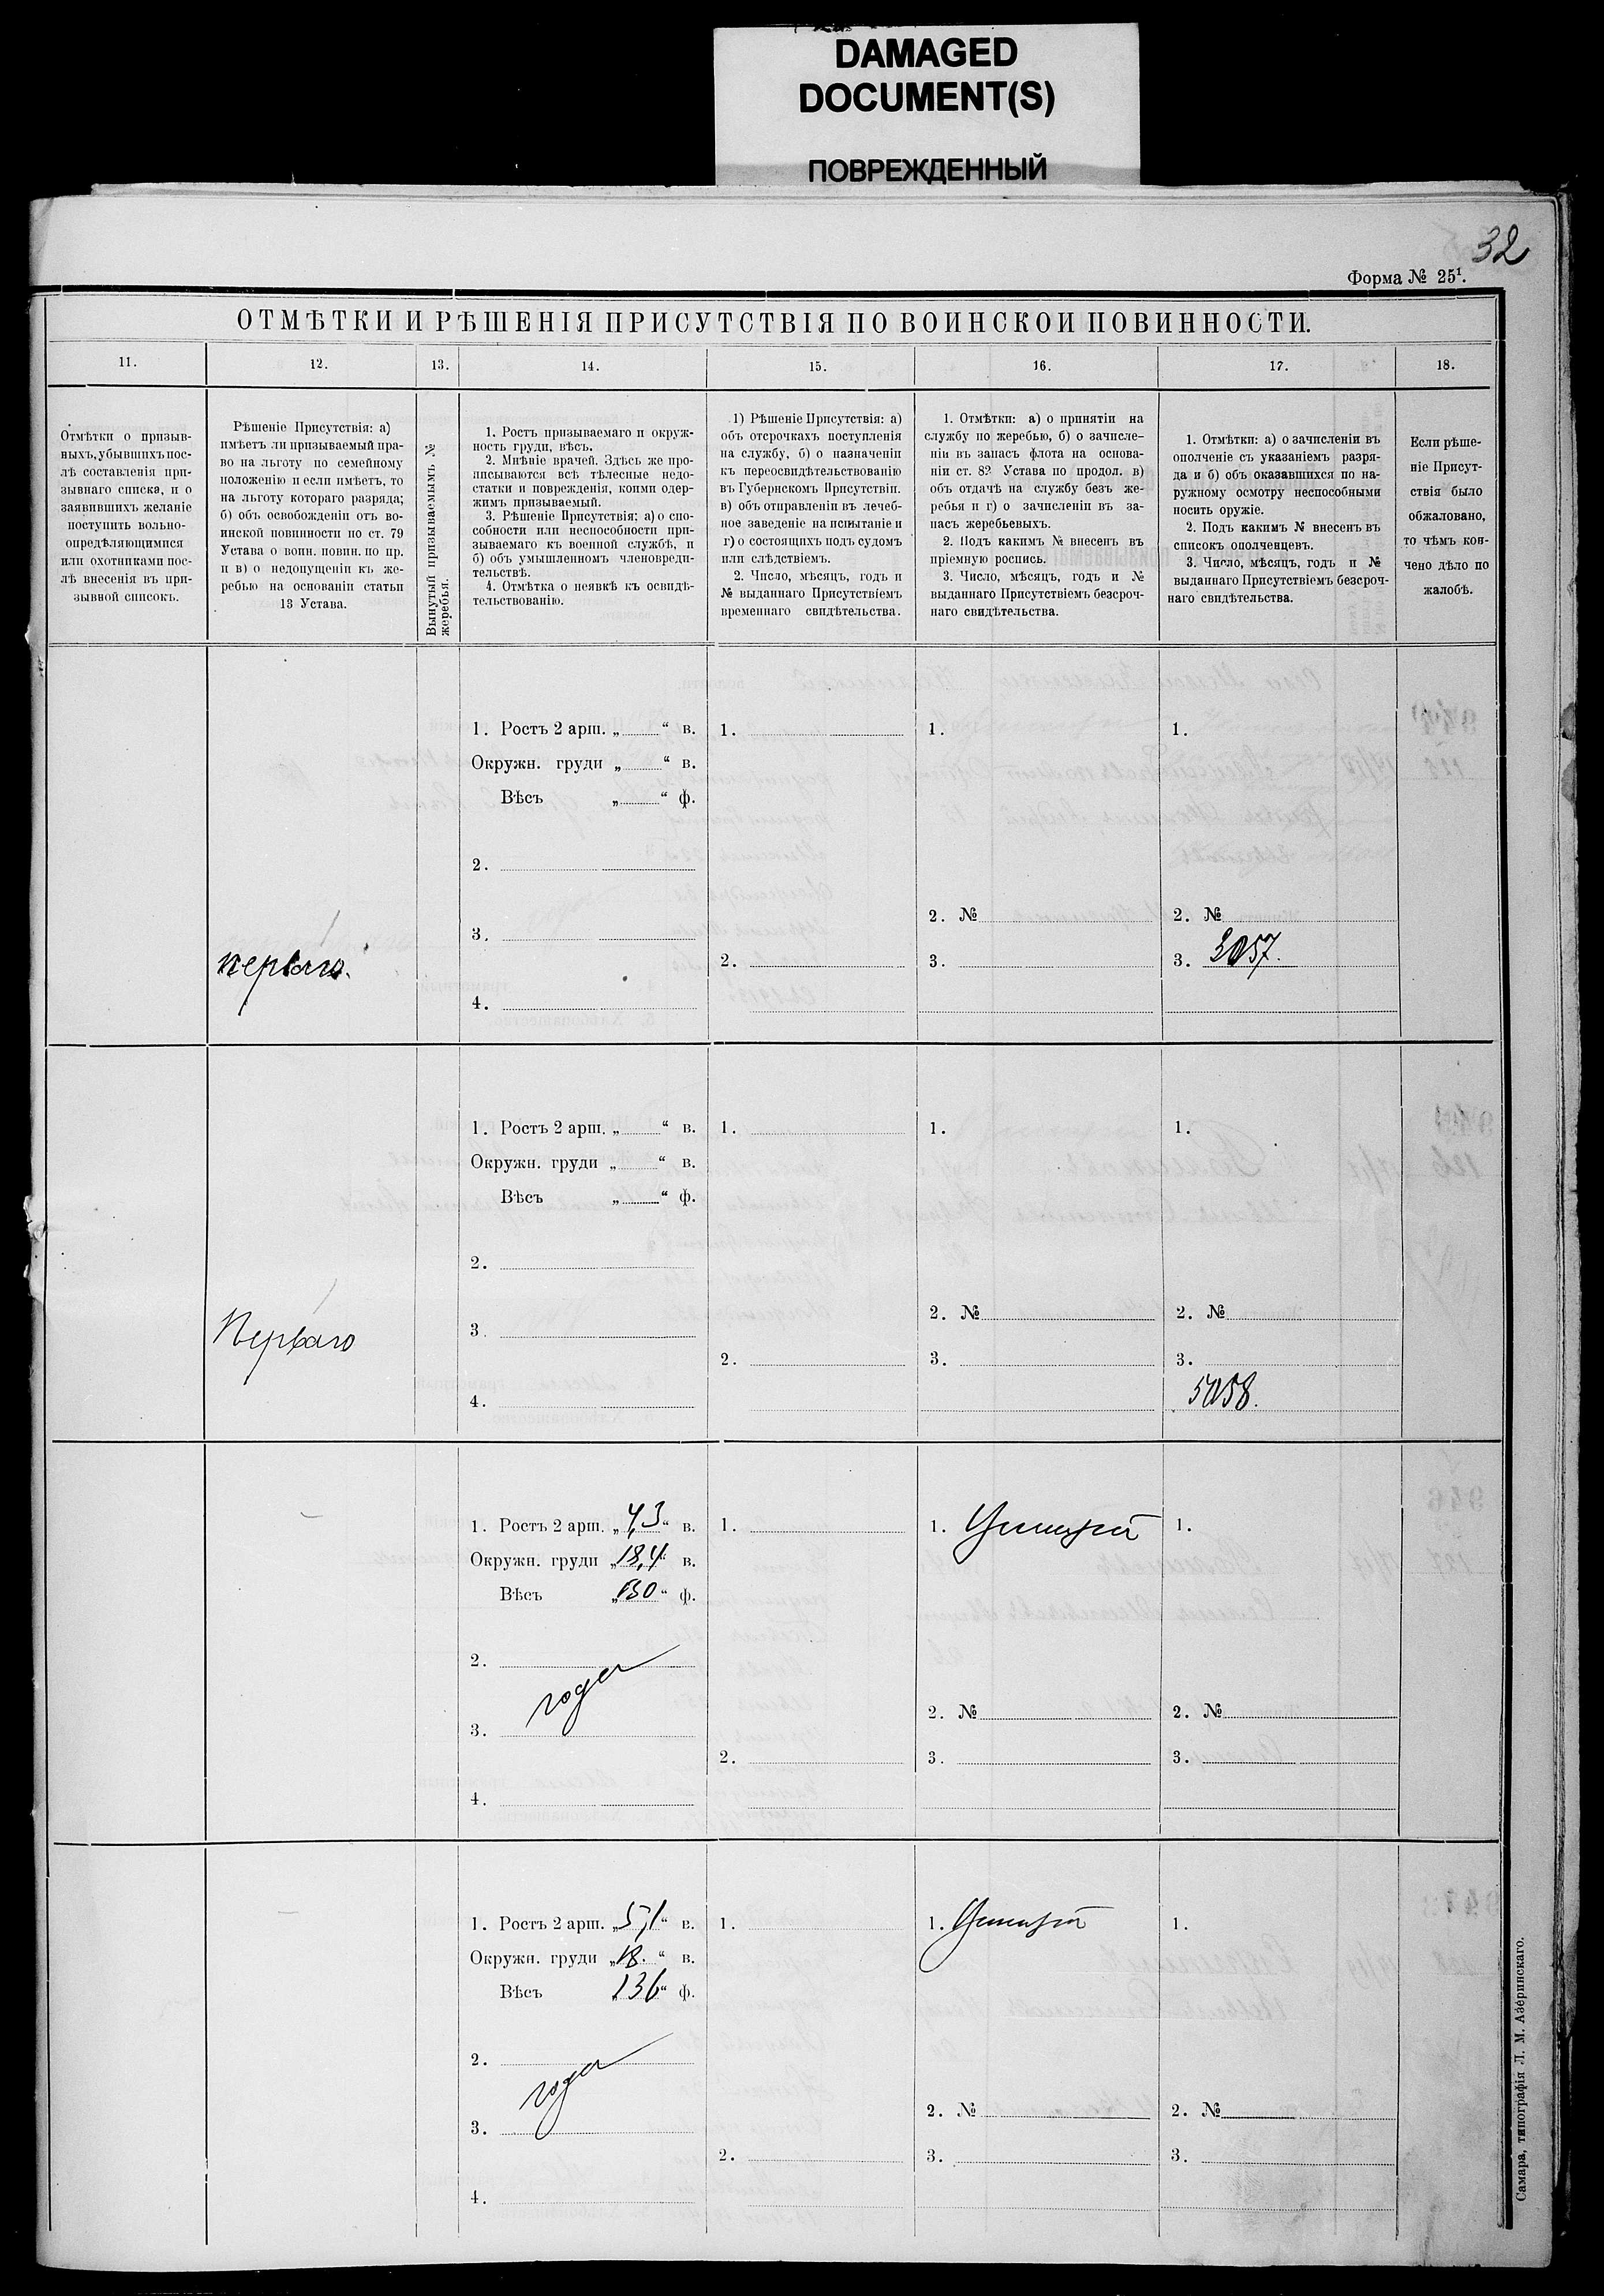 DAMAGED
DOCUMENT(S)
ПОВРЕЖДЕННЫЙ
32
Форма № 25¹.
ОТМѢТКИ И РѢШЕНІЯ ПРИСУТСТВІЯ ПО ВОИНСКОЙ ПОВИННОСТИ.
11. 12. 13. 14. 15. 16. 17. 18.
Отмѣтки о призыв-
ныхъ, убывшихъ пос-
лѣ составленія при-
зывнаго списка, и о
заявившихъ желаніе
поступить вольно-
опредѣляющимися
или охотниками пос-
лѣ внесенія въ при-
зывной списокъ.
Рѣшеніе Присутствія: а)
имѣетъ ли призываемый пра-
во на льготу по семейному
положенію и если имѣетъ, то
на льготу котораго разряда;
б) объ освобожденіи отъ во-
инской повинности по ст. 79
Устава о воин. повин. по пр.
и в) о недопущеніи къ же-
ребью на основаніи статьи
13 Устава.
Вынутый призываемымъ №
жеребья.
1. Ростъ призываемаго и окруж-
ность груди, вѣсъ.
2. Мнѣніе врачей. Здѣсь же про-
писываются всѣ тѣлесные недо-
статки и поврежденія, коими одер-
жимъ призываемый.
3. Рѣшеніе Присутствія: а) о спо-
собности или неспособности при-
зываемаго къ военной службѣ, и
б) объ умышленномъ членовреди-
тельствѣ.
4. Отмѣтка о неявкѣ къ освидѣ-
тельствованію.
1) Рѣшеніе Присутствія: а)
объ отсрочкахъ поступленія
на службу, б) о назначеніи
къ переосвидѣтельствованію
въ Губернскомъ Присутствіи.
в) объ отправленіи въ лечеб-
ное заведеніе на испытаніе и
г) о состоящихъ подъ судомъ
или слѣдствіемъ.
2. Число, мѣсяцъ, годъ и
№ выданнаго Присутствіемъ
временнаго свидѣтельства.
1. Отмѣтки: а) о принятіи на
службу по жеребью, б) о зачисле-
ніи въ запасъ флота на основа-
ніи ст. 82 Устава по продол. в)
объ отдачѣ на службу безъ же-
ребья и г) о зачисленіи въ за-
пасъ жеребьевыхъ.
2. Подъ какимъ № внесенъ въ
пріемную роспись.
3. Число, мѣсяцъ, годъ и №
выданнаго Присутствіемъ безсроч-
наго свидѣтельства.
1. Отмѣтки: а) о зачисленіи въ
ополченіе съ указаніемъ разря-
да и б) объ оказавшихся по на-
ружному осмотру неспособными
носить оружіе.
2. Подъ какимъ № внесенъ въ
списокъ ополченцевъ.
3. Число, мѣсяцъ, годъ и №
выданнаго Присутствіемъ безсроч-
наго свидѣтельства.
Если рѣше-
ніе Присут-
ствія было
обжаловано,
то чѣмъ кон-
чено дѣло по
жалобѣ.
1. Ростъ 2 арш. „ “ в. 1. 1. 1.
Окружн. груди „ “ в.
Вѣсъ „ “ ф.
2.
2. № 2. №
3.
перваго. 2. 3. 3.
4.
1. Ростъ 2 арш. „ “ в. 1. 1. 1.
Окружн. груди „ “ в.
Вѣсъ „ “ ф.
2.
2. № 2. №
Перваго 3.
2. 3. 3.
5058.
4.
1. Ростъ 2 арш. „4,3“ в. 1. 1. 1.
Окружн. груди „18,4“ в.
Вѣсъ „130“ ф.
2.
годен
2. № 2. №
3.
2. 3. 3.
4.
1. Ростъ 2 арш. „5,1“ в. 1. 1. 1.
Окружн. груди „18.“ в.
Вѣсъ „136“ ф.
2.
годен
2. № 2. №
3.
2. 3. 3.
4.
Самара, типографія Л. М. Азеринскаго.